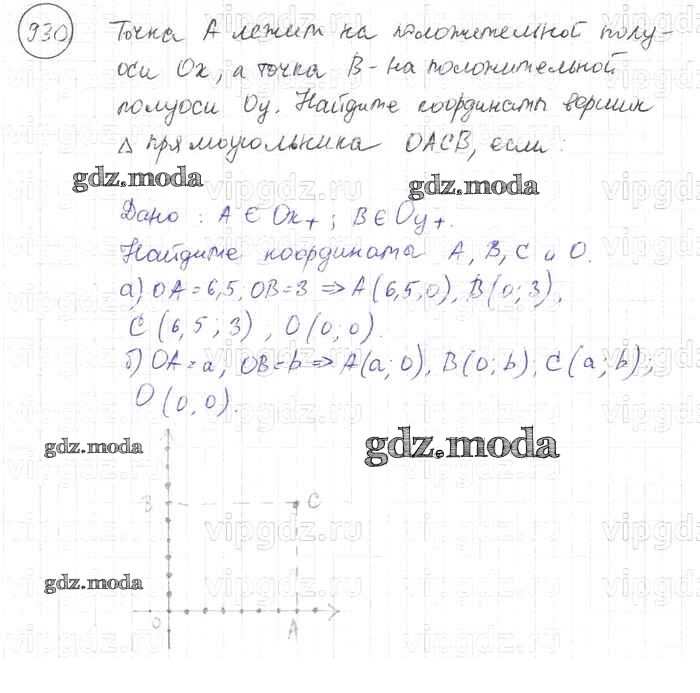 930 Точка А лежит на положительной полу-
оси Ox, а точка В - на положительной
полуоси Oy. Найдите координаты вершин
Δ прямоугольника OACB, если:
gdz.moda gdz.moda
Дано : A ∈ Ox+ ; B ∈ Oy+.
Найдите координаты А, В, С и О.
а) OA = 6,5, OB = 3 => A (6,5, 0), B (0; 3),
C (6,5 ; 3) , O (0; 0).
б) OA = a, OB = b => A(a, 0), B(0; b); C(a; b);
O (0, 0).
gdz.moda gdz.moda
3 C
vipgdz.ru vipgdz.ru
gdz.moda
0 A